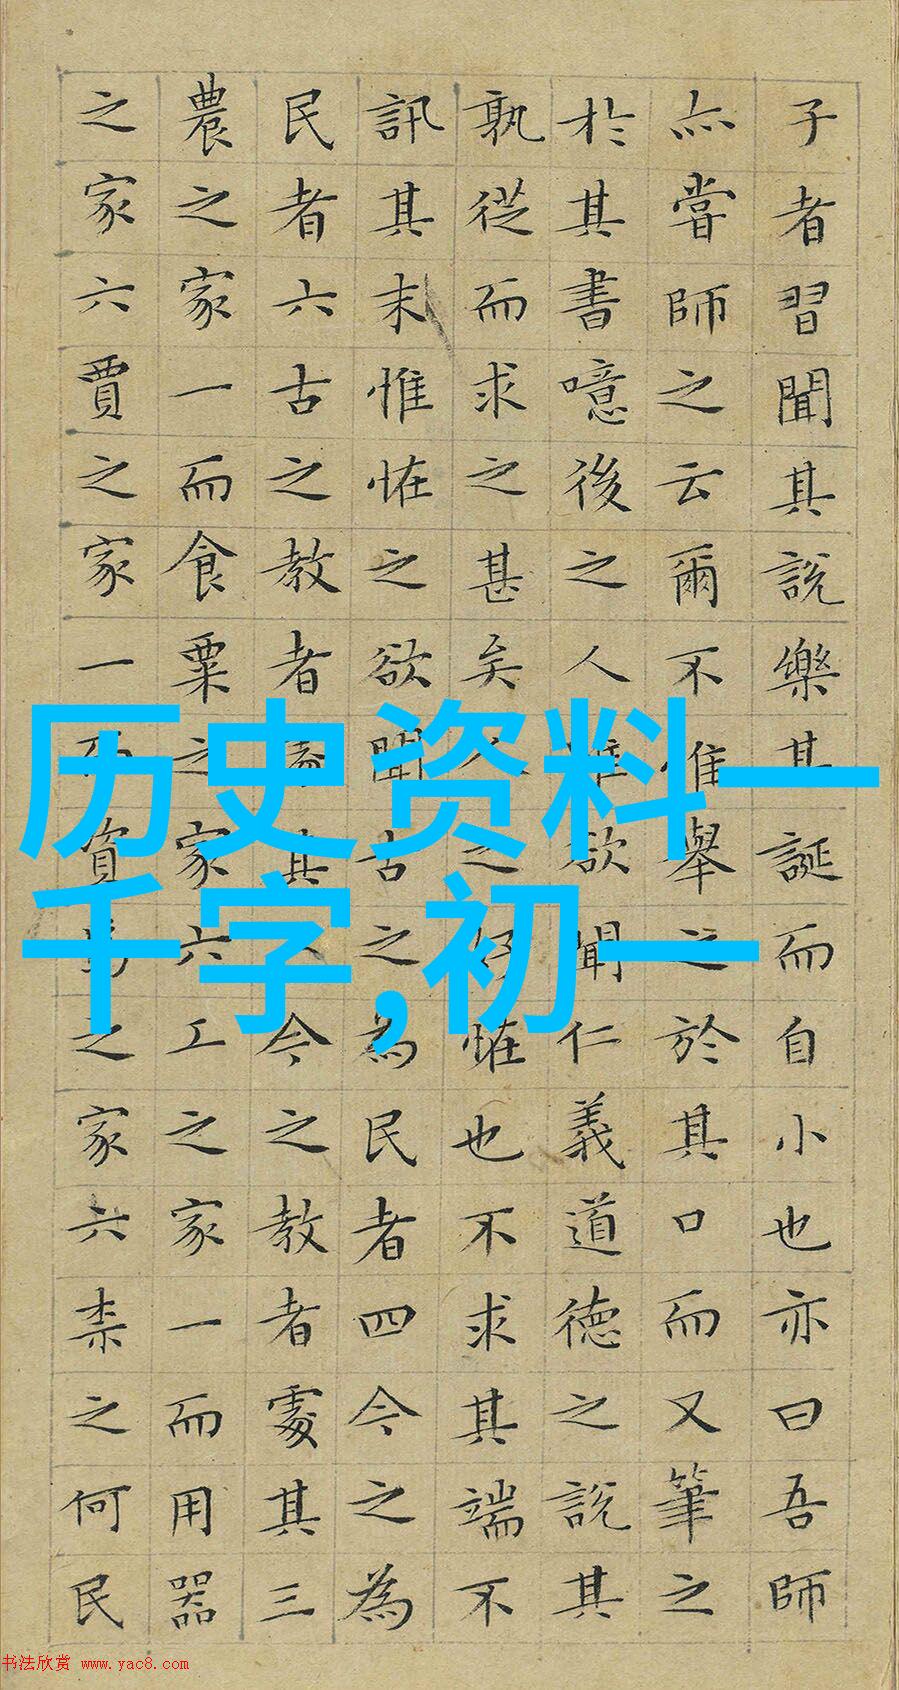 子者習聞其說樂其誕而自小也亦曰吾師
亦嘗師之云爾不惟舉之於其口而又筆之
於其書噫後之人雖欲聞仁義道德之說其
孰從而求之甚矣人之好恠也不求其端不
訊其末惟恠之欲聞古之為民者四今之為
民者六古之教者處其一今之教者處其三
農之家一而食粟之家六工之家一而用器
之家六賈之家一而資焉之家六柰之何民
历史资料一
千字,初一
书法欣赏 www.yac8.com